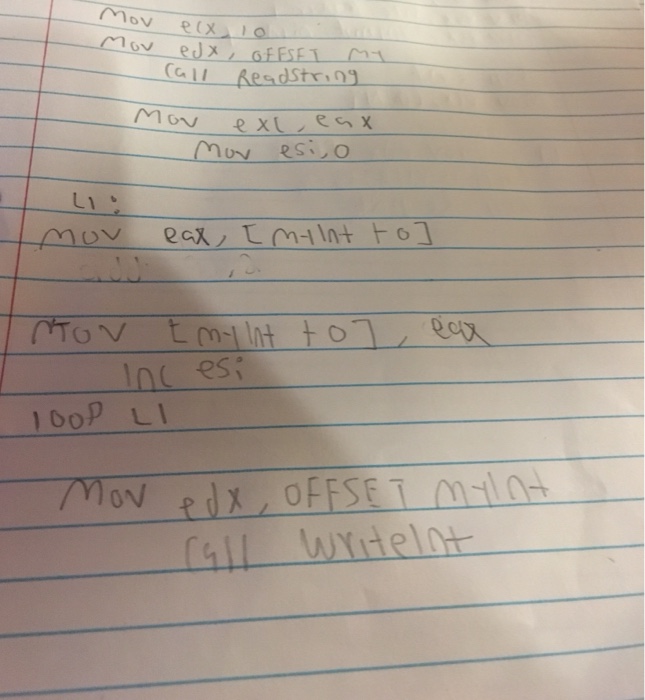 Mov ecx, 10
Mov edx, OFFSET my
Call Readstring
Mov exc, eax
Mov esi, 0
L1:
Mov eax, [myInt + 0]
add , 2
Mov [myInt + 0], eax
Inc esi
loop L1
Mov edx, OFFSET myInt
Call WriteInt